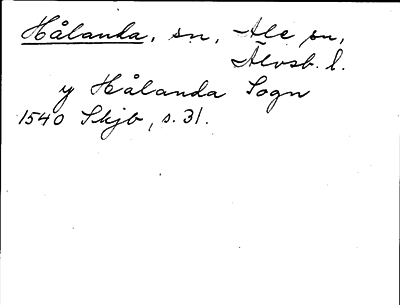 Hålanda, sn, Ale sn,
Älvsb. l.
y Hålanda Sogn
1540 Skjb, s. 31.